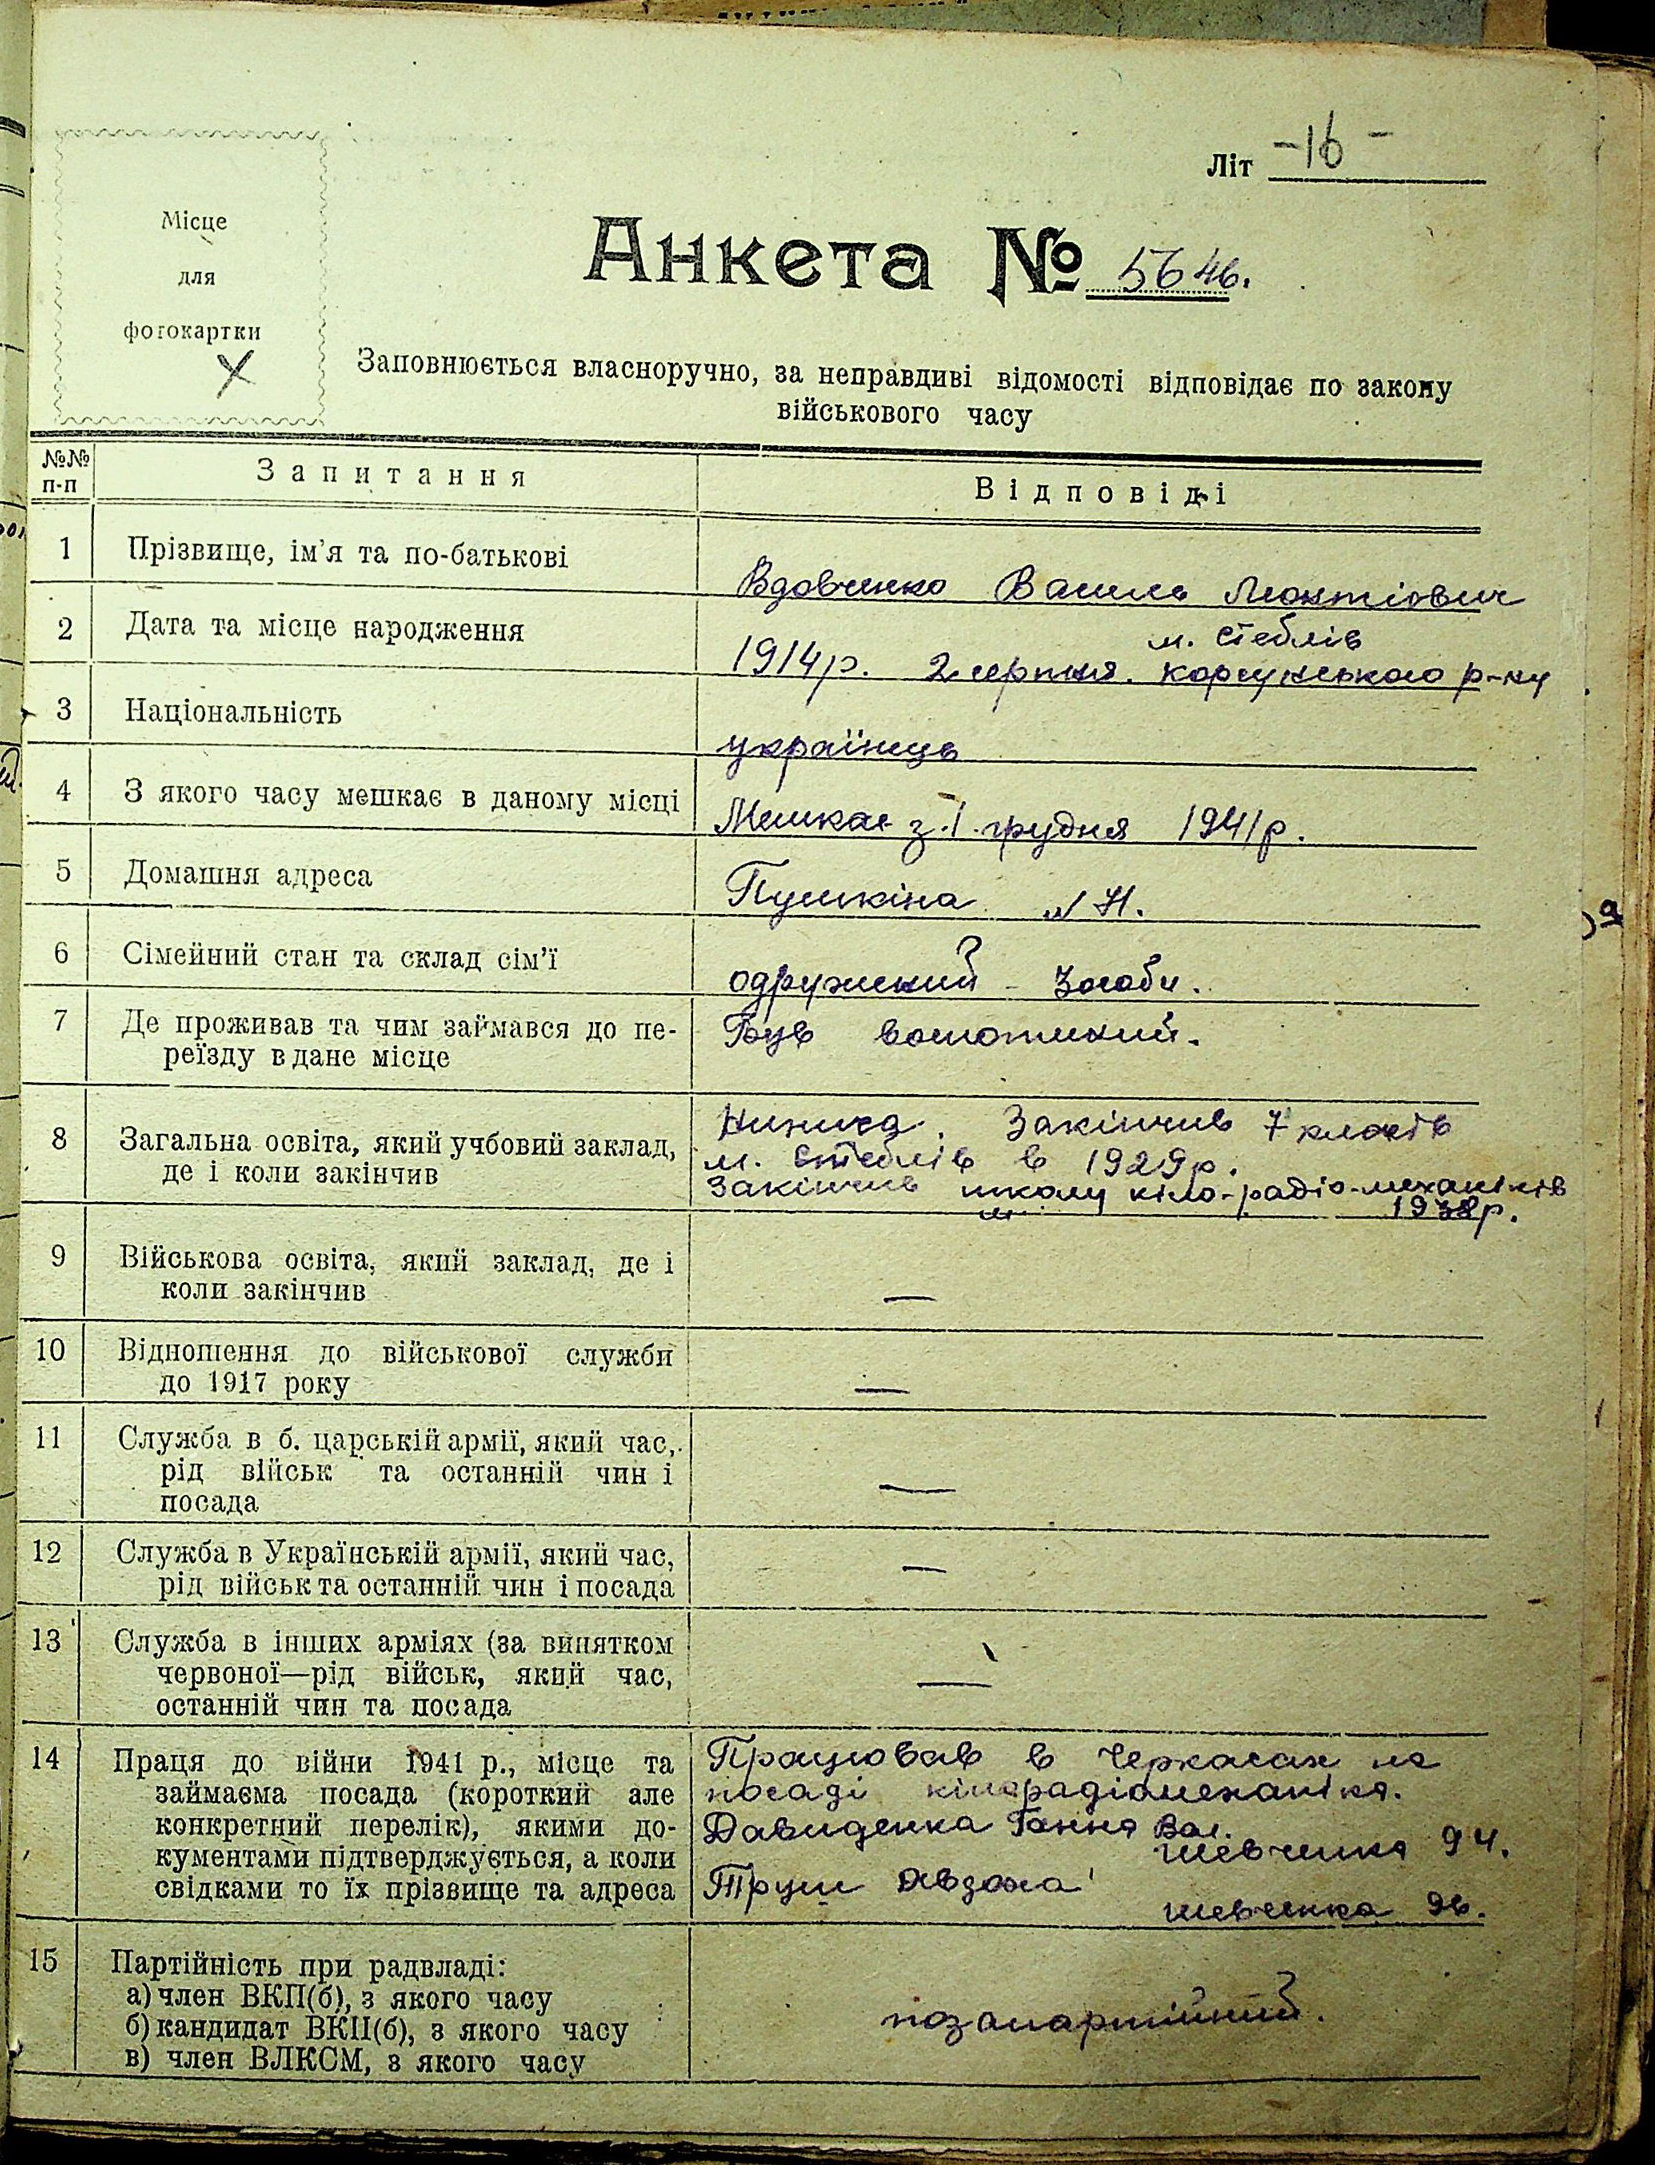 Літ -16-
Місце
для
фотокартки
Анкета № 5646.
Заповнюється власноручно, за неправдиві відомості відповідає по закону
військового часу
№№ п-п
Запитання
Відповіді
1 Прізвище, ім'я та по-батькові
Вдовченко Василь Леонтіович
2 Дата та місце народження
м. Стеблів
1914р. 2 серпня. Корсунського р-ну
3 Національність
українець
4 З якого часу мешкає в даному місці
Мешкає з 1 грудня 1941р.
5 Домашня адреса
Пушкіна
6 Сімейний стан та склад сім'ї
одружений
7 Де проживав та чим займався до пе-
реїзду в дане місце
Був
8 Загальна освіта, який учбовий заклад,
де і коли закінчив
Нижча. Закінчив 7 класів
м. Стеблів в 1929р.
Закінчив школу кіно-радіо-механіків
1938р.
9 Військова освіта, який заклад, де і
коли закінчив
—
10 Відношення до військової служби
до 1917 року
—
11 Служба в б. царській армії, який час,
рід військ та останній чин і
посада
—
12 Служба в Українській армії, який час,
рід військ та останній чин і посада
—
13 Служба в інших арміях (за винятком
червоної—рід військ, який час,
останній чин та посада
—
14 Праця до війни 1941 р., місце та
займаєма посада (короткий але
конкретний перелік), якими до-
кументами підтверджується, а коли
свідками то їх прізвище та адреса
Працював в Черкасах на
посаді кінорадіомеханіка.
Давиденка Ганна Вас.
Шевченка 94.
Труш
Шевченка 96.
15 Партійність при радвладі:
а) член ВКП(б), з якого часу
б) кандидат ВКП(б), з якого часу
в) член ВЛКСМ, з якого часу
позапартійний.